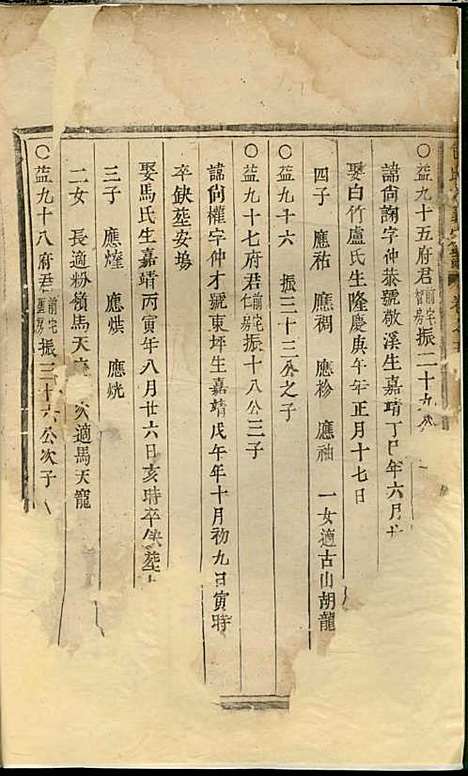 ○益九十五府君前宅智房振二十九公
諱尙詢字仲恭號敬溪生嘉靖丁巳年六月廿
娶白竹盧氏生隆慶庚午年正月十七日
四子 應祐 應裯 應袗 應袖 一女適古山胡龍
○益九十六 振三十三公之子
○益九十七府君前宅仁房振十八公三子
諱尙權字仲才號東坪生嘉靖戊午年十月初九日寅時
卒缺塟安塢
娶馬氏生嘉靖丙寅年八月廿六日亥時卒缺塟
三子 應煃 應烘 應烍
二女 長適粉嶺馬天 次適馬天寵
○益九十八府君前宅 房振三十六公次子